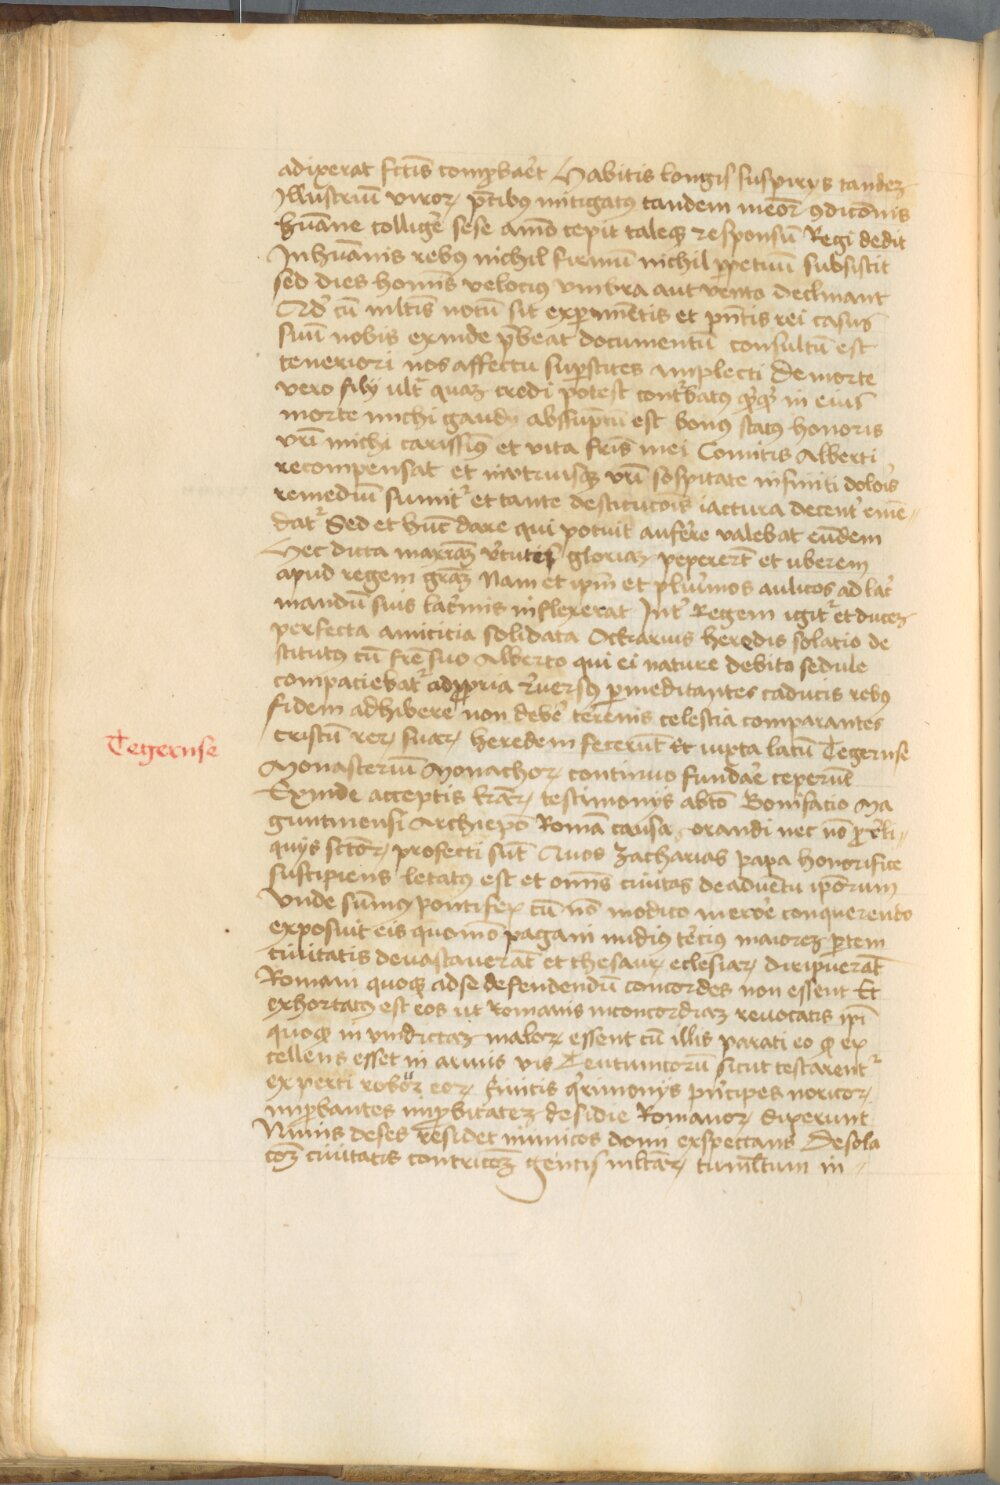 adixerat fctis comprobaret Habitis longis suspirys tandez
Illustriu viroꝝ pcibꝰ mitigatꝰ tandem meor ꝯdicōnis
humane collige sese amo cepit taleqꝫ responsu Regi dedit
In humanis rebꝰ nichil firmu nichil ꝑpetuu subsistit
sed dies homis velociꝰ vmbra aut vento declinant
cu mltis notu sit experimētis et pntis rei casus
suu nobis exinde prbeat documentu consultu est
teneriori nos affectu suꝑstites amplecti De morte
vero fily ult quaꝫ credi potest conturbatꝰ in eius
morte michi gaudy absuptu est bonꝰ statꝰ honoris
vri michi carissimꝰ et vita fris mei Comitis Alberti
recompensat et in vtriusqꝫ vri sospitate infiniti doloris
remediu sumitr et tante destitucōis iactura decentr emē
datr Sed et hūc dare qui potuit auferre valebat eundem
Hec dicta gloriaꝫ pepererut et uberem
apud regem graꝫ Nam et ipm et plurimos aulicos ad lacri
mandu suis lacrimis inflexerat Intr Regem igitr et ducez
perfecta amicitia solidata Ockarius heredis solatio de
stitutꝰ cu fre suo Alberto qui ei nature debito sedule
compaciebatr ad ꝓpria reuersꝰ ꝑmeditantes caducis rebꝰ
fidem adhibere non debe terrenis celestia comparantes
cristu reꝝ suaꝝ heredem fecerut Et iuxta lacu Tegernse
Tegernse
Monasteriu Monachoꝝ continuo fundare ceperut
Exinde acceptis lraꝝ testimonys abto Bonifacio Ma
guntinensi Archiepo Roma causa orandi nec no ꝓ reli
quys sctoꝝ profecti sut Quos Zacharias papa honorifice
suscipiens letatꝰ est et omis ciuitas de aduentu ipōrum
Vnde sumꝰ pontifex cu nō modico merore conquerendo
exposuit eis quomo pagani nudius tercius maiorez ꝑtem
ciuitatis deuastauerat et thesauꝝ eclesiaꝝ diripuerat
Romani quoqꝫ ad se defendendu concordes non essent Et
exhortatꝰ est eos ut Romanis in concordiaꝫ reuocatis ipi
quoqꝫ in vindictaꝫ maloꝝ essent cu illis parati eo ꝙ ex
cellens esset in armis vis Teutunicoru sicut testarentr
experti robur eoꝝ finitis qrimonys principes noricoꝝ
improbantes improbitatez desidie Romanoꝝ dixerunt
Nimis deses residet inimicos domi exspectans Desola
coꝫ ciuitatis contricoꝫ gentis militaꝝ tumltum in